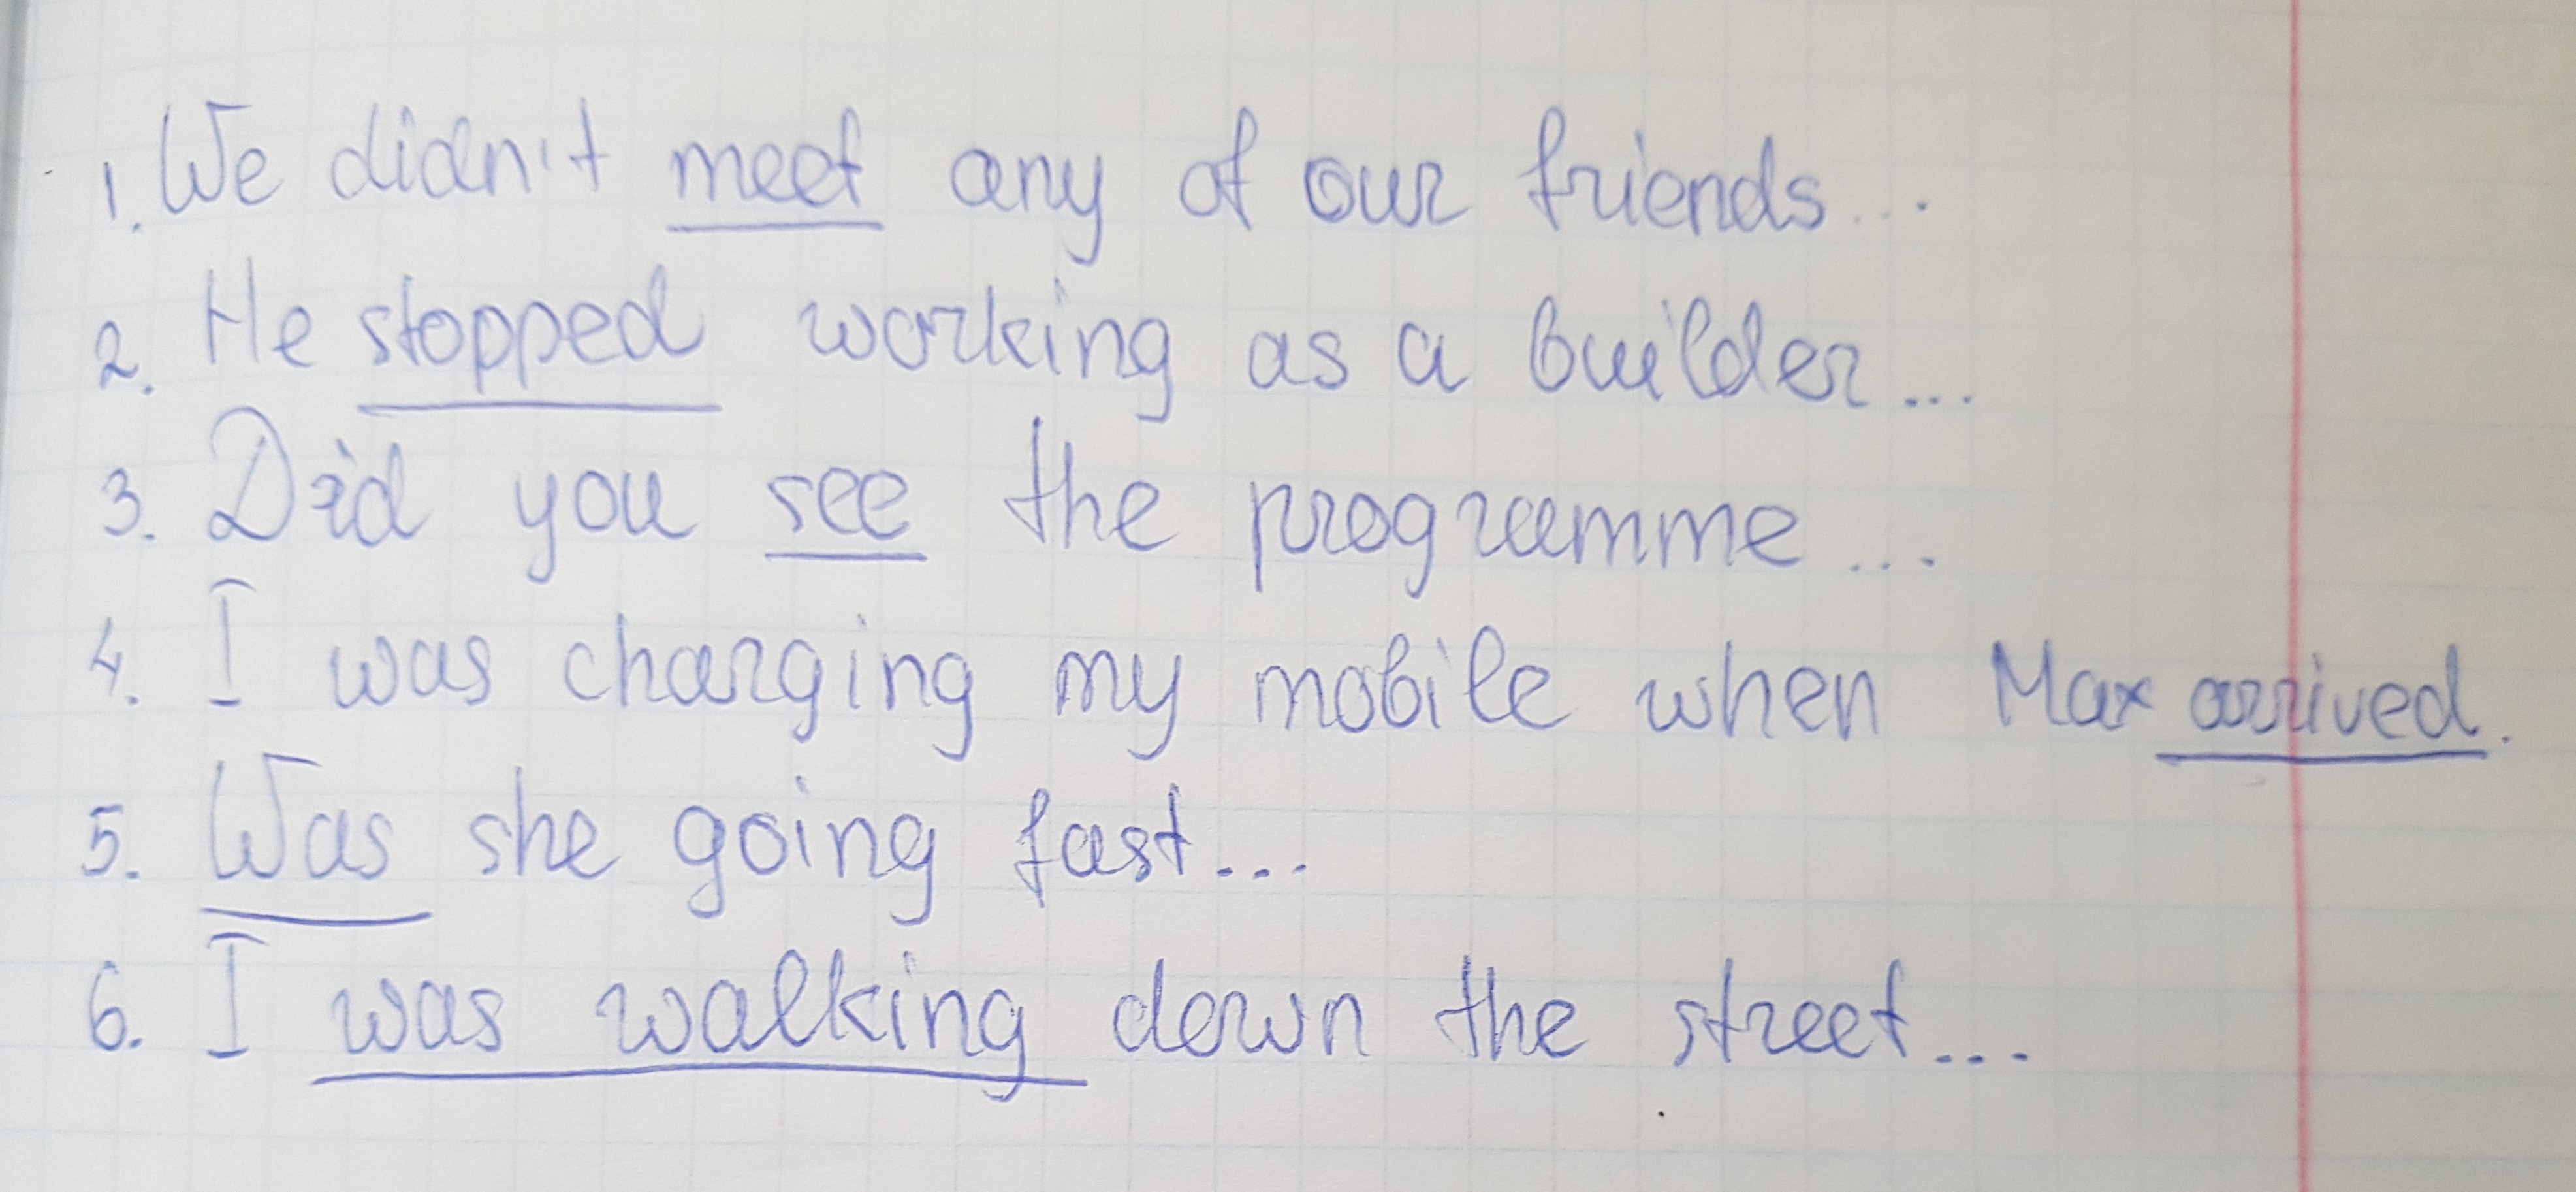 1. We didn't meet any of our friends...
2. He stopped working as a builder...
3. Did you see the programme...
4. I was charging my mobile when Max arrived.
5. Was she going fast...
6. I was walking down the street...